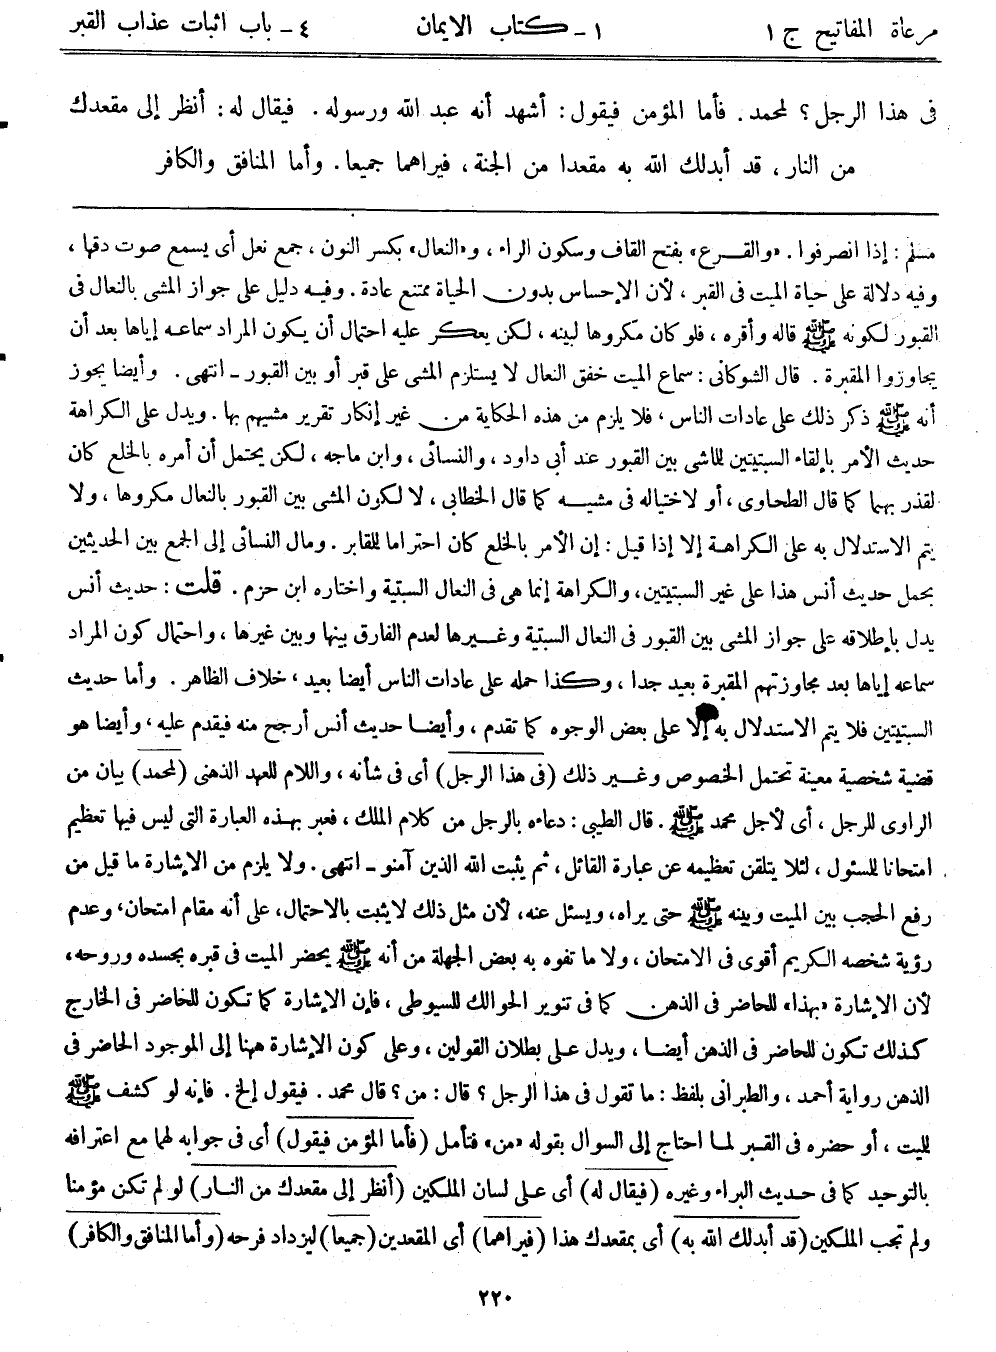 مرعاة المفاتيح ج ١ ١ ـ كتاب الايمان ٤ ـ باب اثبات عذاب القبر
فى هذا الرجل؟ لمحمد. فأما المؤمن فيقول: أشهد أنه عبد الله ورسوله. فيقال له: أنظر إلى مقعدك
من النار، قد أبدلك الله به مقعدا من الجنة، فيراهما جميعا. وأما المنافق والكافر
مسلم: إذا انصرفوا. «والقرع» بفتح القاف وسكون الراء، و«النعال» بكسر النون، جمع نعل أى يسمع صوت دقها،
وفيه دلالة على حياة الميت فى القبر، لأن الإحساس بدون الحياة ممتنع عادة. وفيه دليل على جواز المشى بالنعال فى
القبور لكونه ﷺ قاله وأقره، فلو كان مكروها لبينه، لكن يعكر عليه احتمال أن يكون المراد سماعه إياها بعد أن
يجاوزوا المقبرة. قال الشوكانى: سماع الميت خفق النعال لا يستلزم المشى على قبر أو بين القبور ـ انتهى. وأيضا يجوز
أنه ﷺ ذكر ذلك على عادات الناس، فلا يلزم من هذه الحكاية من غير إنكار تقرير مشيهم بها. ويدل على الكراهة
حديث الأمر بإلقاء السبتيتين للماشى بين القبور عند أبى داود، والنسائى، وابن ماجه، لكن يحتمل أن أمره بالخلع كان
لقذر بهما كما قال الطحاوى، أو لاختياله فى مشيه كما قال الخطابى، لا لكون المشى بين القبور بالنعال مكروها، ولا
يتم الاستدلال به على الكراهة إلا إذا قيل: إن الأمر بالخلع كان احتراما للمقابر. ومال النسائى إلى الجمع بين الحديثين
بحمل حديث أنس هذا على غير السبتيتين، والكراهة إنما هى فى النعال السبتية واختاره ابن حزم. قلت: حديث أنس
يدل بإطلاقه على جواز المشى بين القبور فى النعال السبتية وغيرها لعدم الفارق بينها وبين غيرها، واحتمال كون المراد
سماعه إياها بعد مجاوزتهم المقبرة بعيد جدا، وكذا حمله على عادات الناس أيضا بعيد، خلاف الظاهر. وأما حديث
السبتيتين فلا يتم الاستدلال به إلا على بعض الوجوه كما تقدم، وأيضا حديث أنس أرجح منه فيقدم عليه، وأيضا هو
قضية شخصية معينة تحتمل الخصوص وغير ذلك (فى هذا الرجل) أى فى شأنه، واللام للعهد الذهنى (لمحمد) بيان من
الراوى للرجل، أى لأجل محمد ﷺ. قال الطيبى: دعاءه بالرجل من كلام الملك، فعبر بهذه العبارة التى ليس فيها تعظيم
امتحانا للمسئول، لئلا يتلقن تعظيمه عن عبارة القائل، ثم يثبت الله الذين آمنو ـ انتهى. ولا يلزم من الإشارة ما قيل من
رفع الحجب بين الميت وبينه ﷺ حتى يراه، ويسئل عنه، لأن مثل ذلك لايثبت بالاحتمال، على أنه مقام امتحان، وعدم
رؤية شخصه الكريم أقوى فى الامتحان، ولا ما تفوه به بعض الجهلة من أنه ﷺ يحضر الميت فى قبره بجسده وروحه،
لأن الإشارة «بهذا» للحاضر فى الذهن كما فى تنوير الحوالك للسيوطى، فإن الإشارة كما تكون للحاضر فى الخارج
كذلك تكون للحاضر فى الذهن أيضا، ويدل على بطلان القولين، وعلى كون الإشارة ههنا إلى الموجود الحاضر فى
الذهن رواية أحمد، والطبرانى بلفظ: ما تقول فى هذا الرجل؟ قال: من؟ قال محمد. فيقول إلخ. فإنه لو كشف ﷺ
للميت، أو حضره فى القبر لما احتاج إلى السوال بقوله «من» فتأمل (فأما المؤمن فيقول) أى فى جوابه لهما مع اعترافه
بالتوحيد كما فى حديث البراء وغيره (فيقال له) أى على لسان الملكين (أنظر إلى مقعدك من النار) لو لم تكن مؤمنا
ولم تجب الملكين (قد أبدلك الله به) أى بمقعدك هذا (فيراهما) أى المقعدين (جميعا) ليزداد فرحه (وأما المنافق والكافر)
٢٢٠